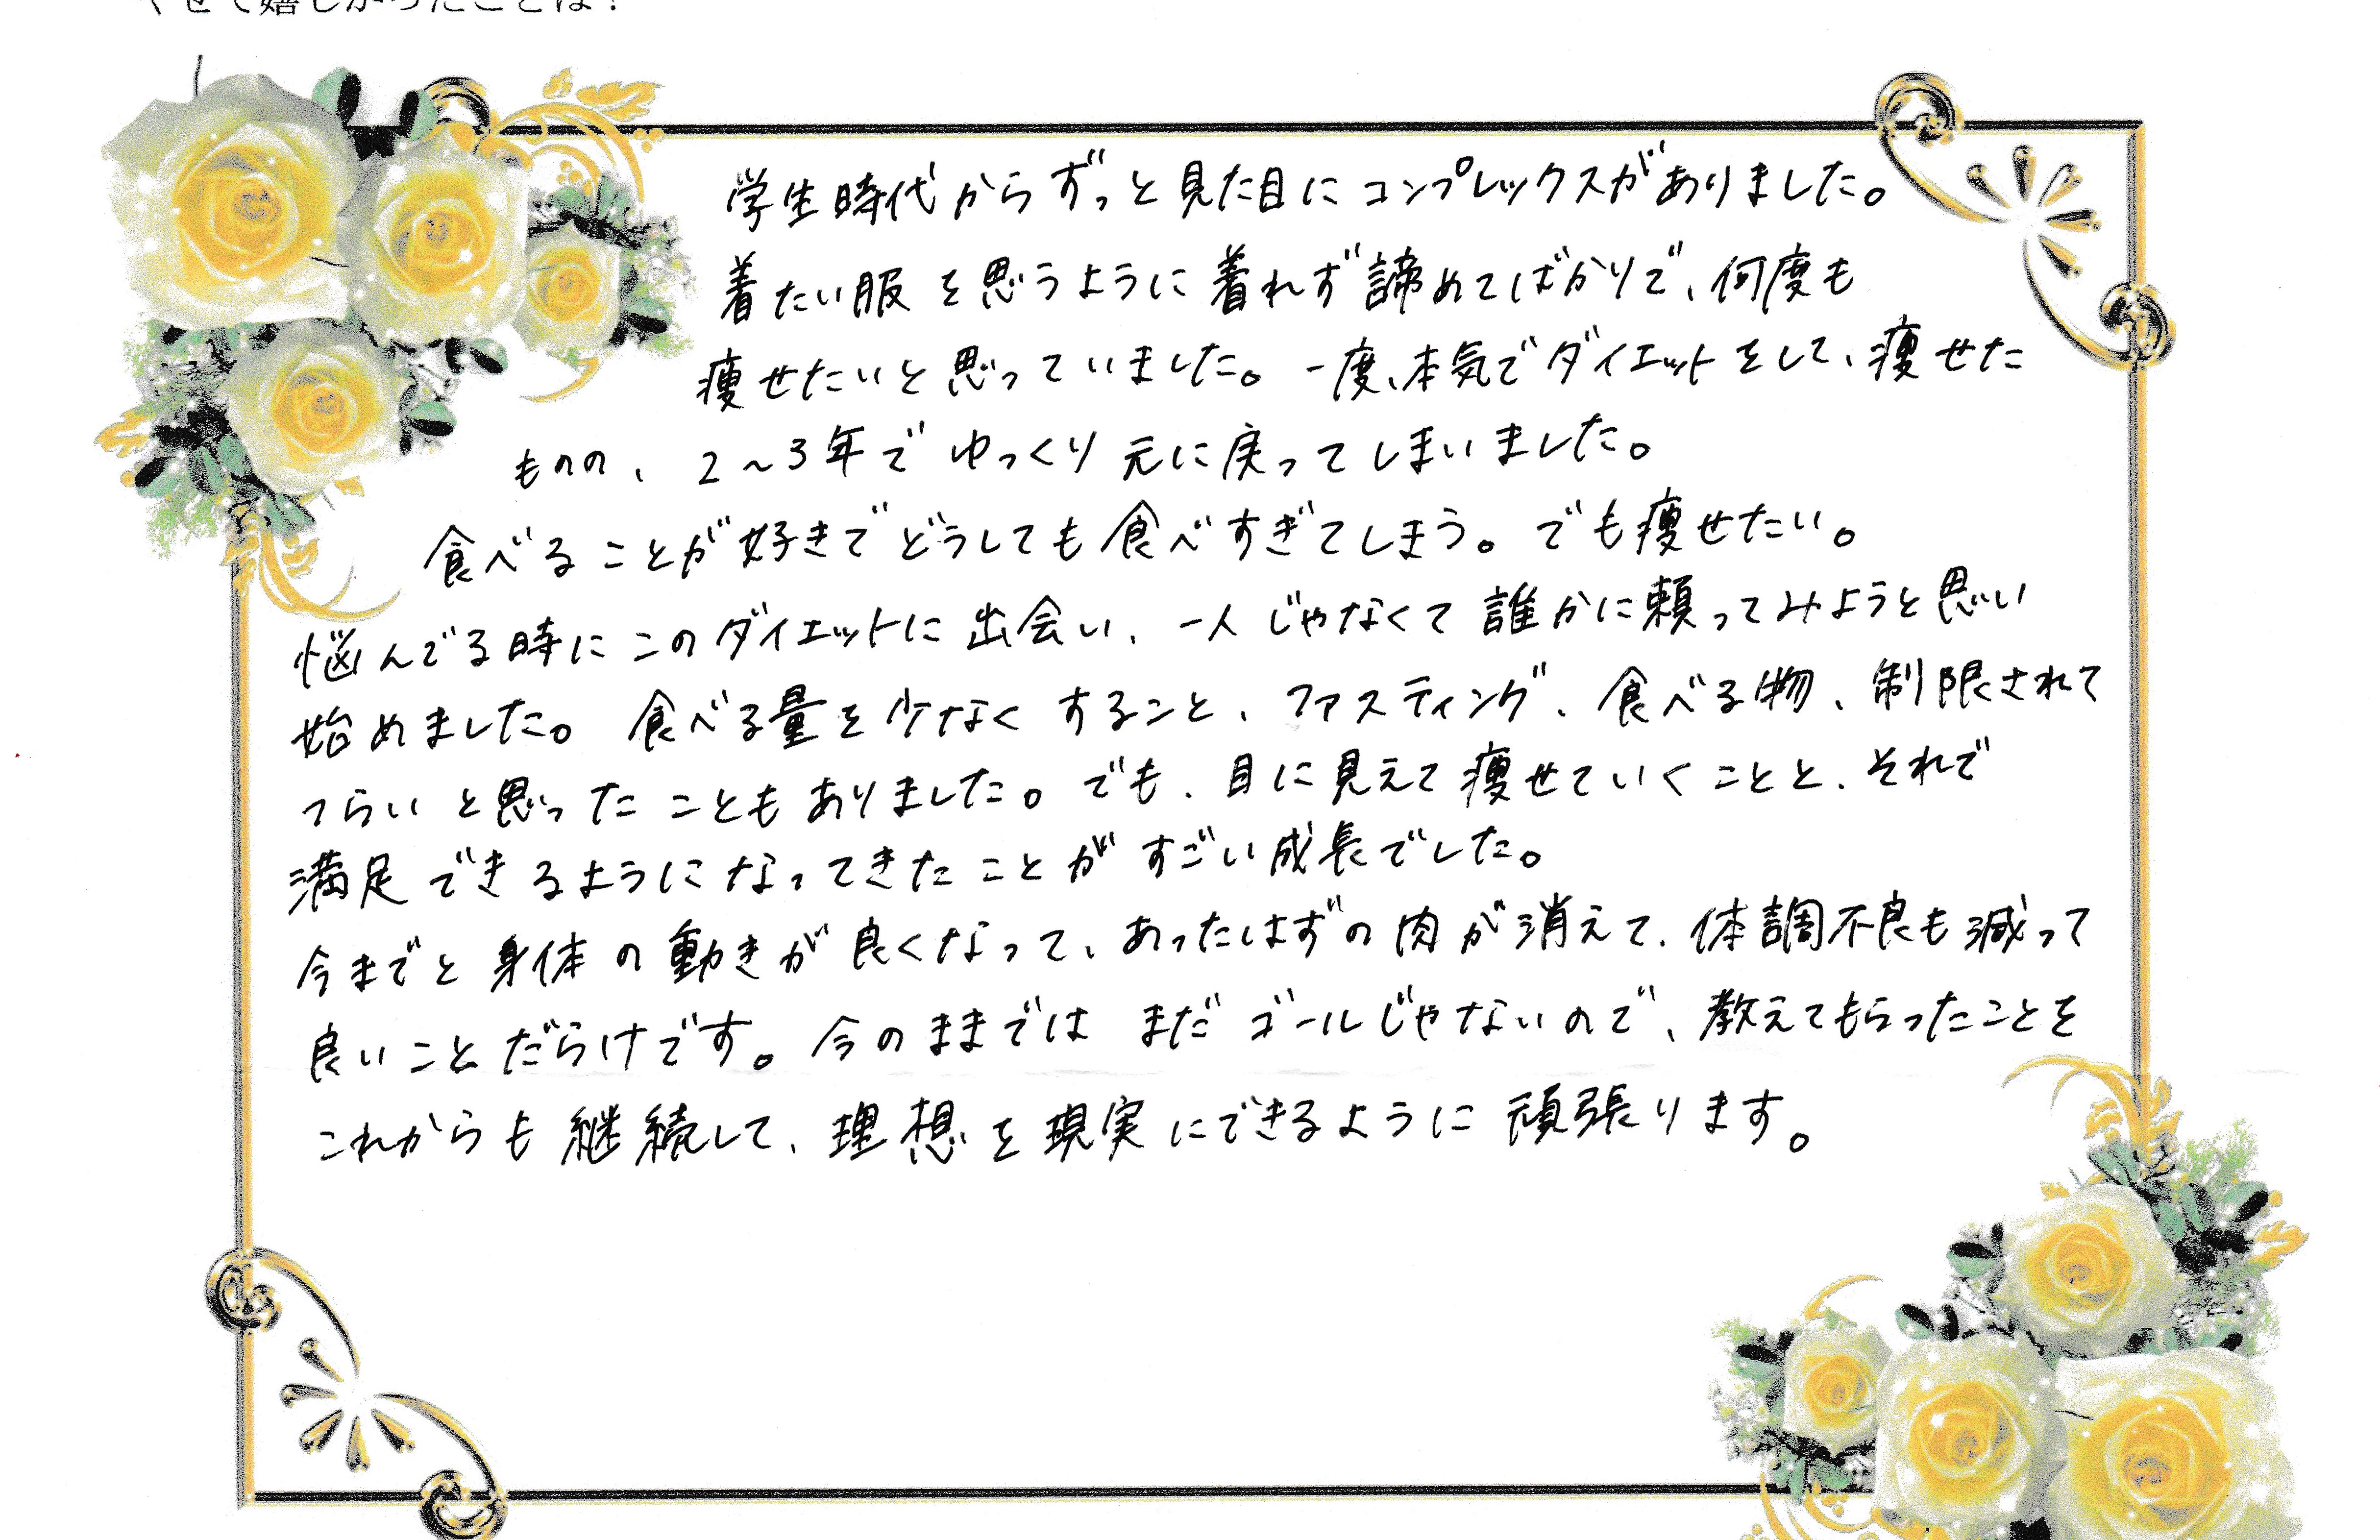 せて嬉しかったことは？
学生時代からずっと見た目にコンプレックスがありました。
着たい服を思うように着れず諦めてばかりで、何度も
痩せたいと思っていました。一度、本気でダイエットをして、痩せた
ものの、2～3年でゆっくり元に戻ってしまいました。
食べることが好きでどうしても食べすぎてしまう。でも痩せたい。
悩んでる時にこのダイエットに出会い、一人じゃなくて誰かに頼ってみようと思い
始めました。食べる量を少なくすること、ファスティング、食べる物、制限されて
つらいと思ったこともありました。でも、目に見えて痩せていくことと、それで
満足できるようになってきたことがすごい成長でした。
今までと身体の動きが良くなって、あったはずの肉が消えて、体調不良も減って
良いことだらけです。今のままではまだゴールじゃないので、教えてもらったことを
これからも継続して、理想を現実にできるように頑張ります。